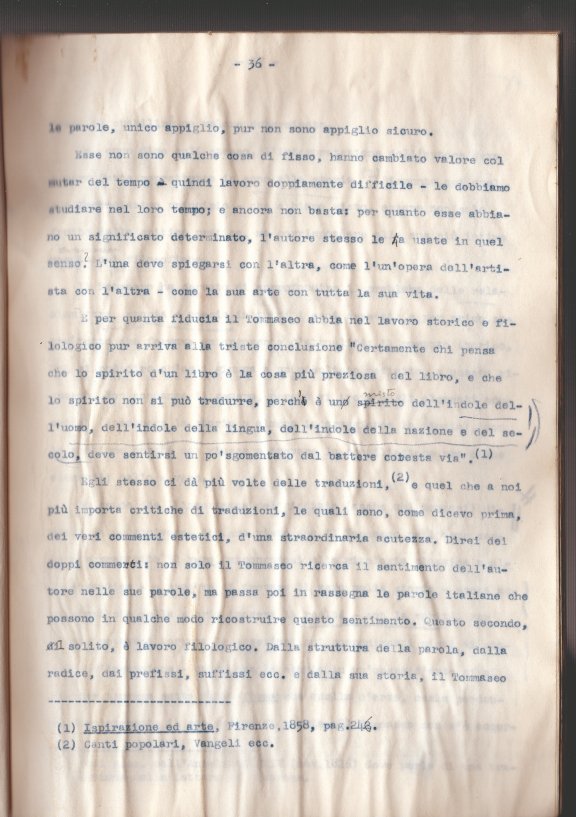 - 36 -
le parole, unico appiglio, pur non sono appiglio sicuro.
Esse non sono qualche cosa di fisso, hanno cambiato valore col
mutar del tempo - quindi lavoro doppiamente difficile - le dobbiamo
studiare nel loro tempo; e ancora non basta: per quanto esse abbia-
no un significato determinato, l'autore stesso le ha usate in quel
senso? L'una deve spiegarsi con l'altra, come l'un'opera dell'arti-
sta con l'altra - come la sua arte con tutta la sua vita.
E per quanta fiducia il Tommaseo abbia nel lavoro storico e fi-
lologico pur arriva alla triste conclusione "Certamente chi pensa
che lo spirito d'un libro è la cosa più preziosa del libro, e che
lo spirito non si può tradurre, perchè è un misto dell'indole del-
l'uomo, dell'indole della lingua, dell'indole della nazione e del se-
colo, deve sentirsi un po'sgomentato dal battere cotesta via".(1)
Egli stesso ci dà più volte delle traduzioni,(2) e quel che a noi
più importa critiche di traduzioni, le quali sono, come dicevo prima,
dei veri commenti estetici, d'una straordinaria acutezza. Direi dei
doppi commenti: non solo il Tommaseo ricerca il sentimento dell'au-
tore nelle sue parole, ma passa poi in rassegna le parole italiane che
possono in qualche modo ricostruire questo sentimento. Questo secondo,
al solito, è lavoro filologico. Dalla struttura della parola, dalla
radice, dai prefissi, suffissi ecc. e dalla sua storia, il Tommaseo
(1) Ispirazione ed arte, Firenze,1858, pag.246.
(2) Canti popolari, Vangeli ecc.